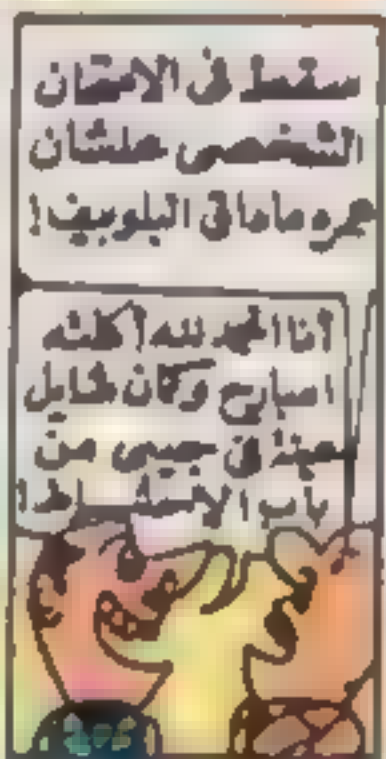 سقط فى الامتحان
الشخصى علشان
ماما فى البلوبيف !
أنا الحمد لله أكلته
امبارح وكان
فى جيبى من
باب الاحتياط !